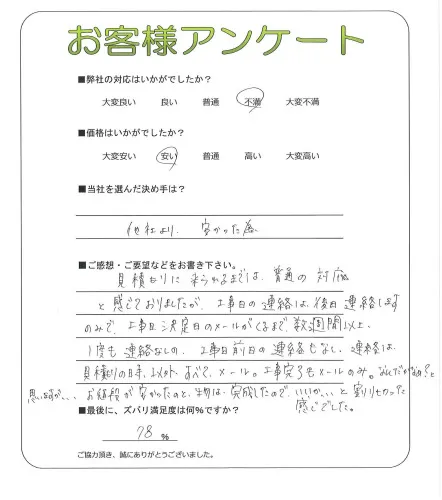 お客様アンケート
■弊社の対応はいかがでしたか？
大変良い 良い 普通 不満 大変不満
■価格はいかがでしたか？
大変安い 安い 普通 高い 大変高い
■当社を選んだ決め手は？
他社より、安かった為
■ご感想・ご要望などをお書き下さい。
見積もりに来られるまでは、普通の対応
と感じておりましたが、工事日の連絡は、後日連絡します
のみで、工事日決定日のメールがくるまで、数週間以上、
1度も連絡なしの、工事日前日の連絡もなし。連絡は、
見積りの日時、以外、すべて、メール。工事完了もメールのみ。なんでだかなぁ?と
思いますが、、、お値段が安かったのと、物は、完成したので、いいか、、と割り切った
感じでした。
■最後に、ズバリ満足度は何%ですか？
78 %
ご協力頂き、誠にありがとうございました。